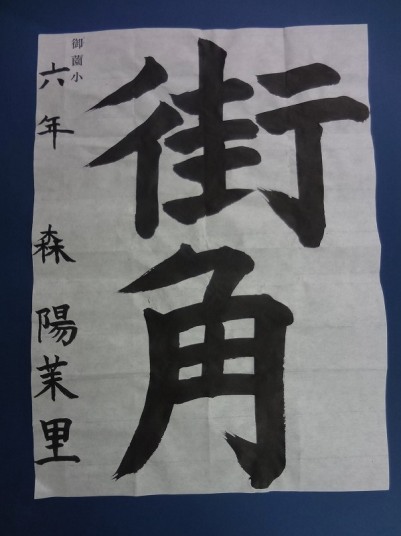 街角
御薗小
六年 森 陽茉里